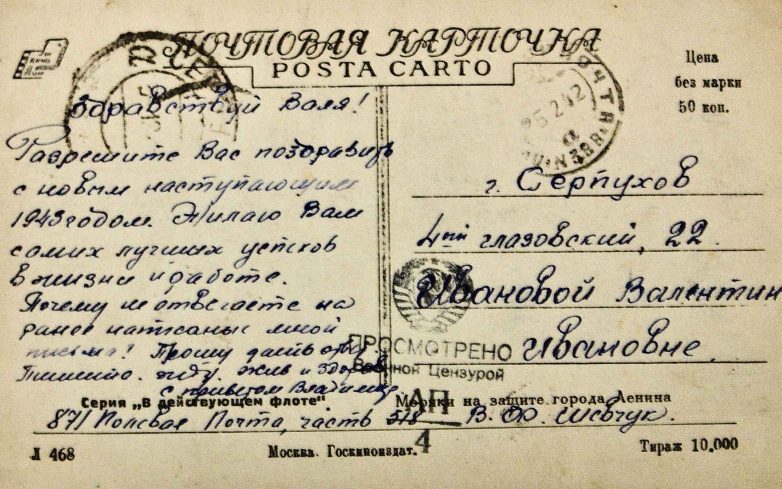 ПОЧТОВАЯ КАРТОЧКА
POSTA CARTO
Цена
без марки
50 коп.
Здравствуй Валя!
Разрешите Вас поздравить
с новым наступающим
1943 годом. Жилаю Вам
самих лучших успехов
в жизни и работе.
Почему не отвечаете на
ранее написаные мной
письма? Прошу дайте
Пишите. жду. жив и здоров
с приветом Владимир
г. Серпухов
4ый глазовский, 22.
Ивановой Валентин
Ивановне.
ПРОСМОТРЕНО
Военной Цензурой
АП
4
Серия „В действующем флоте"
Моряки на защите города Ленина
871 Полевая Почта, часть 518 В. Ф. Шевчук.
Л 468
Москва. Госкиноиздат.
Тираж 10.000